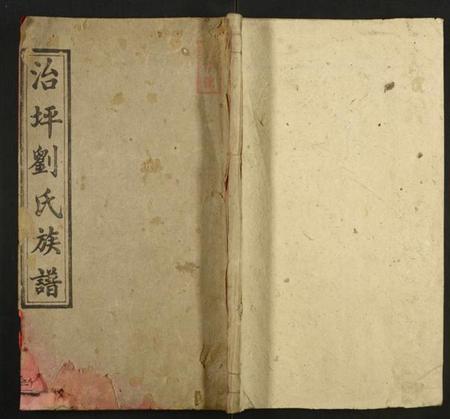 治坪劉氏族譜